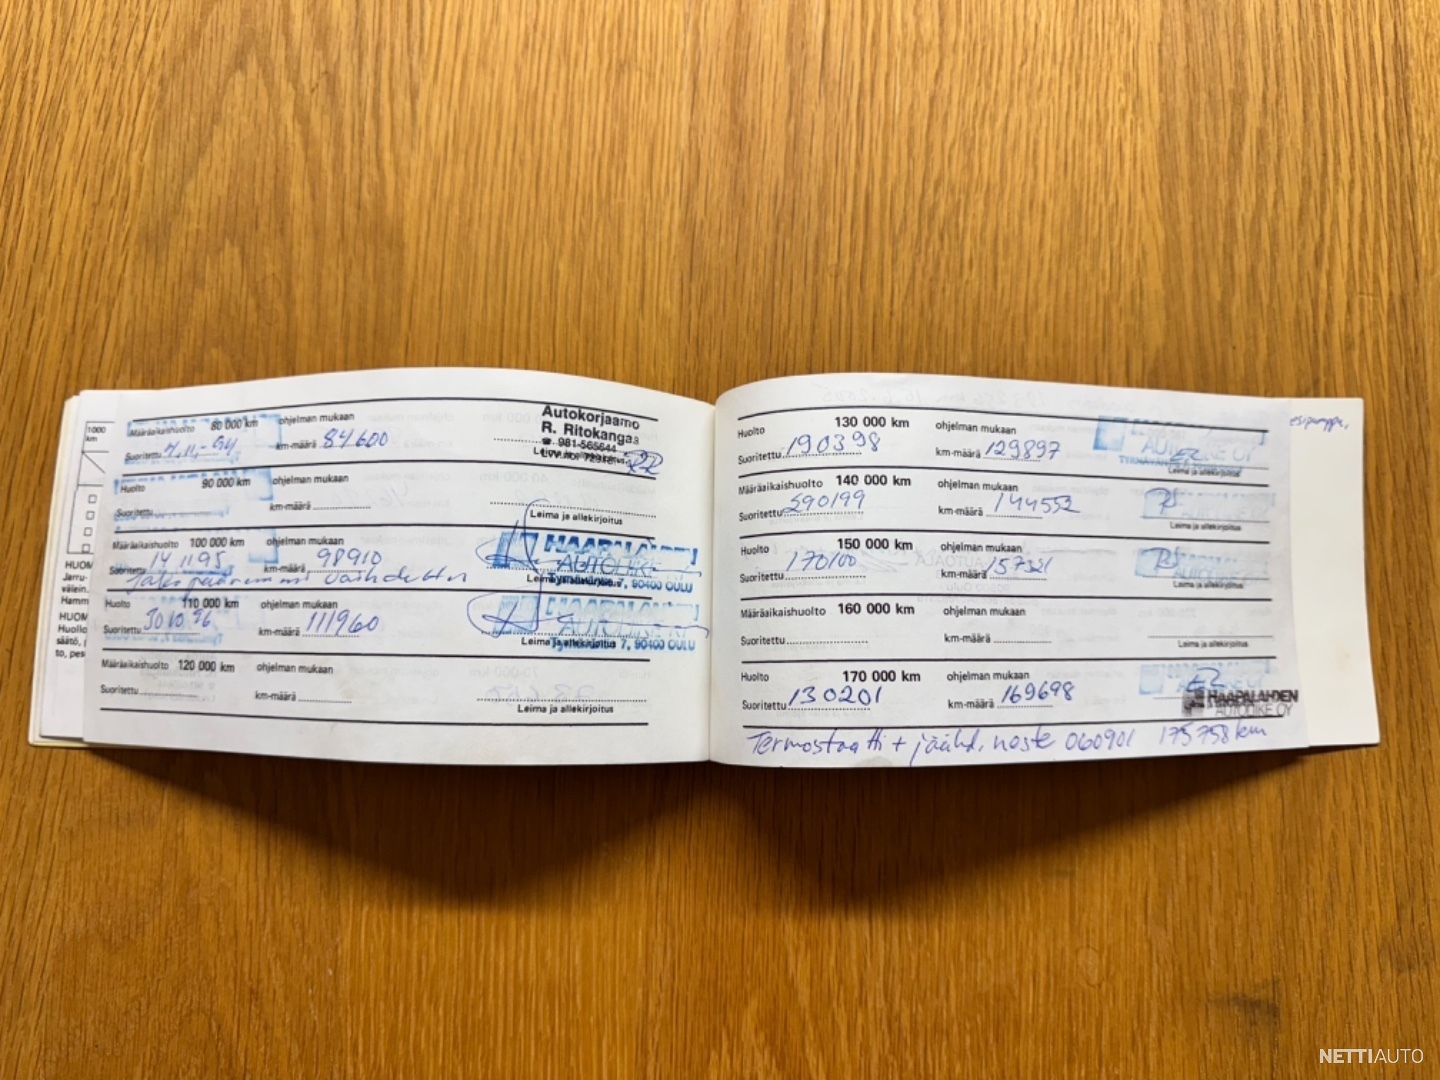 1000
km
HUOM
Jarru-
välein.
Hamm
HUOM
Huollo
säätö,
to, pes
Määräaikaishuolto 80 000 km ohjelman mukaan
Suoritettu 7.11.-94 km-määrä 84600
Autokorjaamo
R. Ritokangas
981-565644
Huolto 90 000 km ohjelman mukaan
Suoritettu km-määrä
Leima ja allekirjoitus
Määräaikaishuolto 100 000 km ohjelman mukaan
Suoritettu 141195 km-määrä 98910
HAAPALAHDEN
AUTOLIIKE
7, 90400 OULU
Jakopään vaihdettu
Huolto 110 000 km ohjelman mukaan
Suoritettu 301096 km-määrä 111960
Leima ja allekirjoitus
HAAPALAHDEN
7, 90400 OULU
Määräaikaishuolto 120 000 km ohjelman mukaan
Suoritettu km-määrä
Leima ja allekirjoitus
Huolto 130 000 km ohjelman mukaan
Suoritettu 190398 km-määrä 129897
AUTOLIIKE OY
Leima ja allekirjoitus
Määräaikaishuolto 140 000 km ohjelman mukaan
Suoritettu 290199 km-määrä 144552
Leima ja allekirjoitus
Huolto 150 000 km ohjelman mukaan
Suoritettu 170100 km-määrä 157321
Leima ja allekirjoitus
Määräaikaishuolto 160 000 km ohjelman mukaan
Suoritettu km-määrä
Leima ja allekirjoitus
Huolto 170 000 km ohjelman mukaan
Suoritettu 130201 km-määrä 169698
HAAPALAHDEN
AUTOLIIKE OY
Termostaatti + jäähd. neste 060901 175758 km
NETTIAUTO